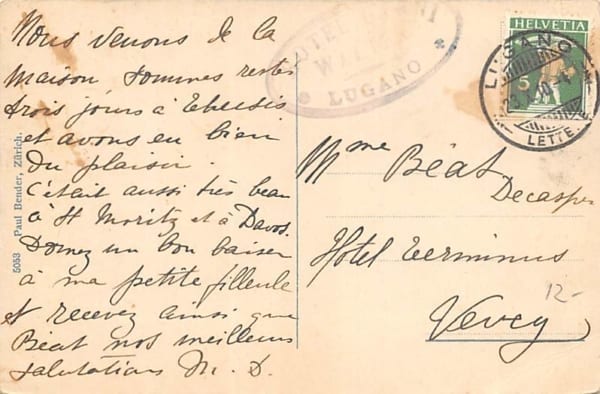 Nous venons de la
maison sommes restés
trois jours à
et avons eu bien
du plaisir.
C'était aussi très beau
à St Moritz et à Davos.
Donnez un bon baiser
à ma petite filleule
et recevez ainsi que
Béat nos meilleures
salutations M. D.
5053 Paul Bender, Zürich.
HOTEL
LUGANO
HELVETIA
5
LUGANO
LETTERE
Mme Béat
Decasper
Hotel Terminus
Vevey
12-